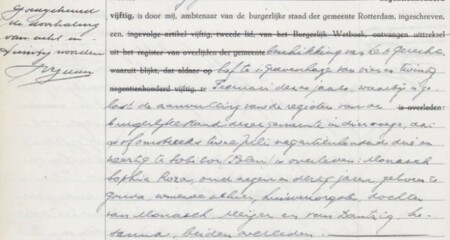 Goedgekeurd
de doorhaling
van acht in
twintig woorden
vijftig, is door mij, ambtenaar van de burgerlijke stand der gemeente Rotterdam, ingeschre-
ven, een ingevolge artikel vijftig, tweede lid, van het Burgerlijk Wetboek, ontvangen uittreksel
uit het register van overlijden der gemeente beschikking van het gerechts-
waaruit blijkt, dat aldaar op hof te 's Gravenhage van vier en twintig
negentienhonderd vijftig, Februari dezes jaars, waarbij is ge-
last de aanvulling van de registers van de is overleden:
burgerlijke stand dezer gemeente in dier voege, dat
op of omstreeks twee Juli negentienhonderd drie en
veertig te Sobibor (Polen) is overleden: Monasch
Sophia Roza, oud negen en dertig jaren, geboren te
Gouda, wonende alhier, huisvrouw, dochter
van Monasch, Meijer en van Dantzig, Su-
sanna, beiden overleden.